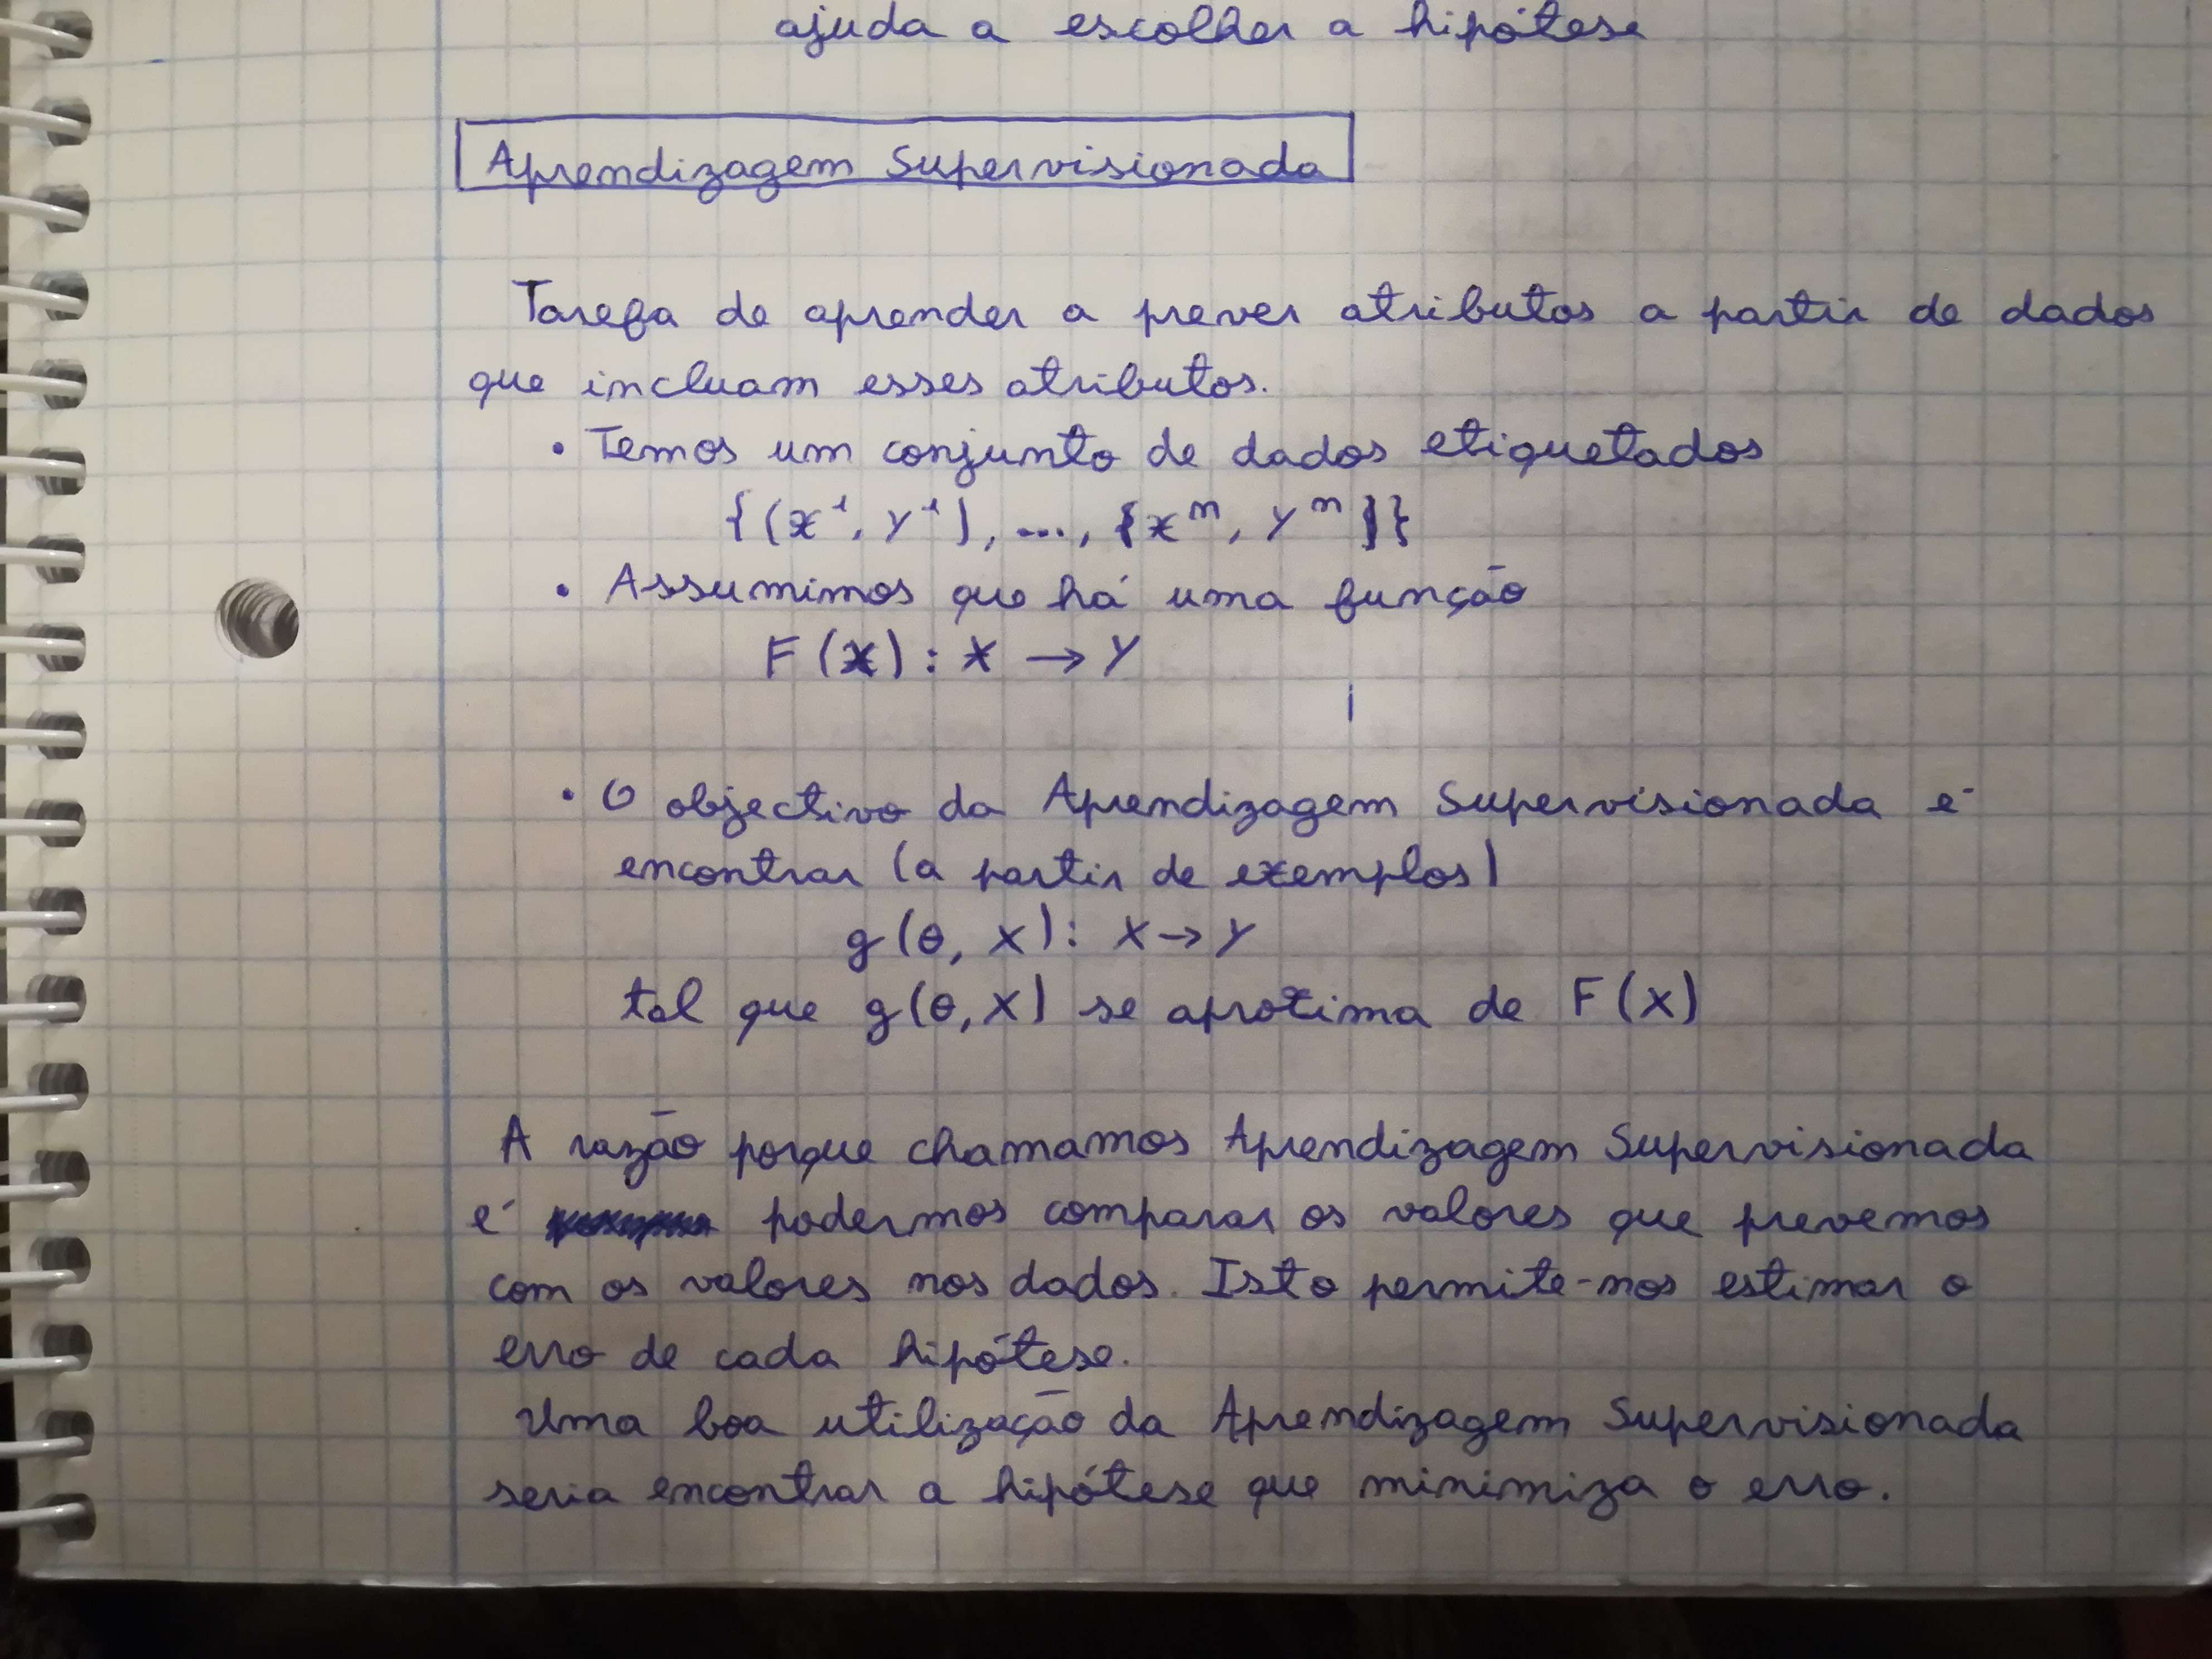 ajuda a escolher a hipótese
Aprendizagem Supervisionada
Tarefa de aprender a prever atributos a partir de dados
que incluam esses atributos.
• Temos um conjunto de dados etiquetados
{(x¹, y¹), ..., (xᵐ, yᵐ)}
• Assumimos que há uma função
F(x): X → Y
• O objectivo da Aprendizagem Supervisionada é
encontrar (a partir de exemplos)
g(θ, X): X → Y
tal que g(θ, X) se aproxima de F(X)
A razão porque chamamos Aprendizagem Supervisionada
é podermos comparar os valores que prevemos
com os valores nos dados. Isto permite-nos estimar o
erro de cada hipótese.
Uma boa utilização da Aprendizagem Supervisionada
seria encontrar a hipótese que minimiza o erro.